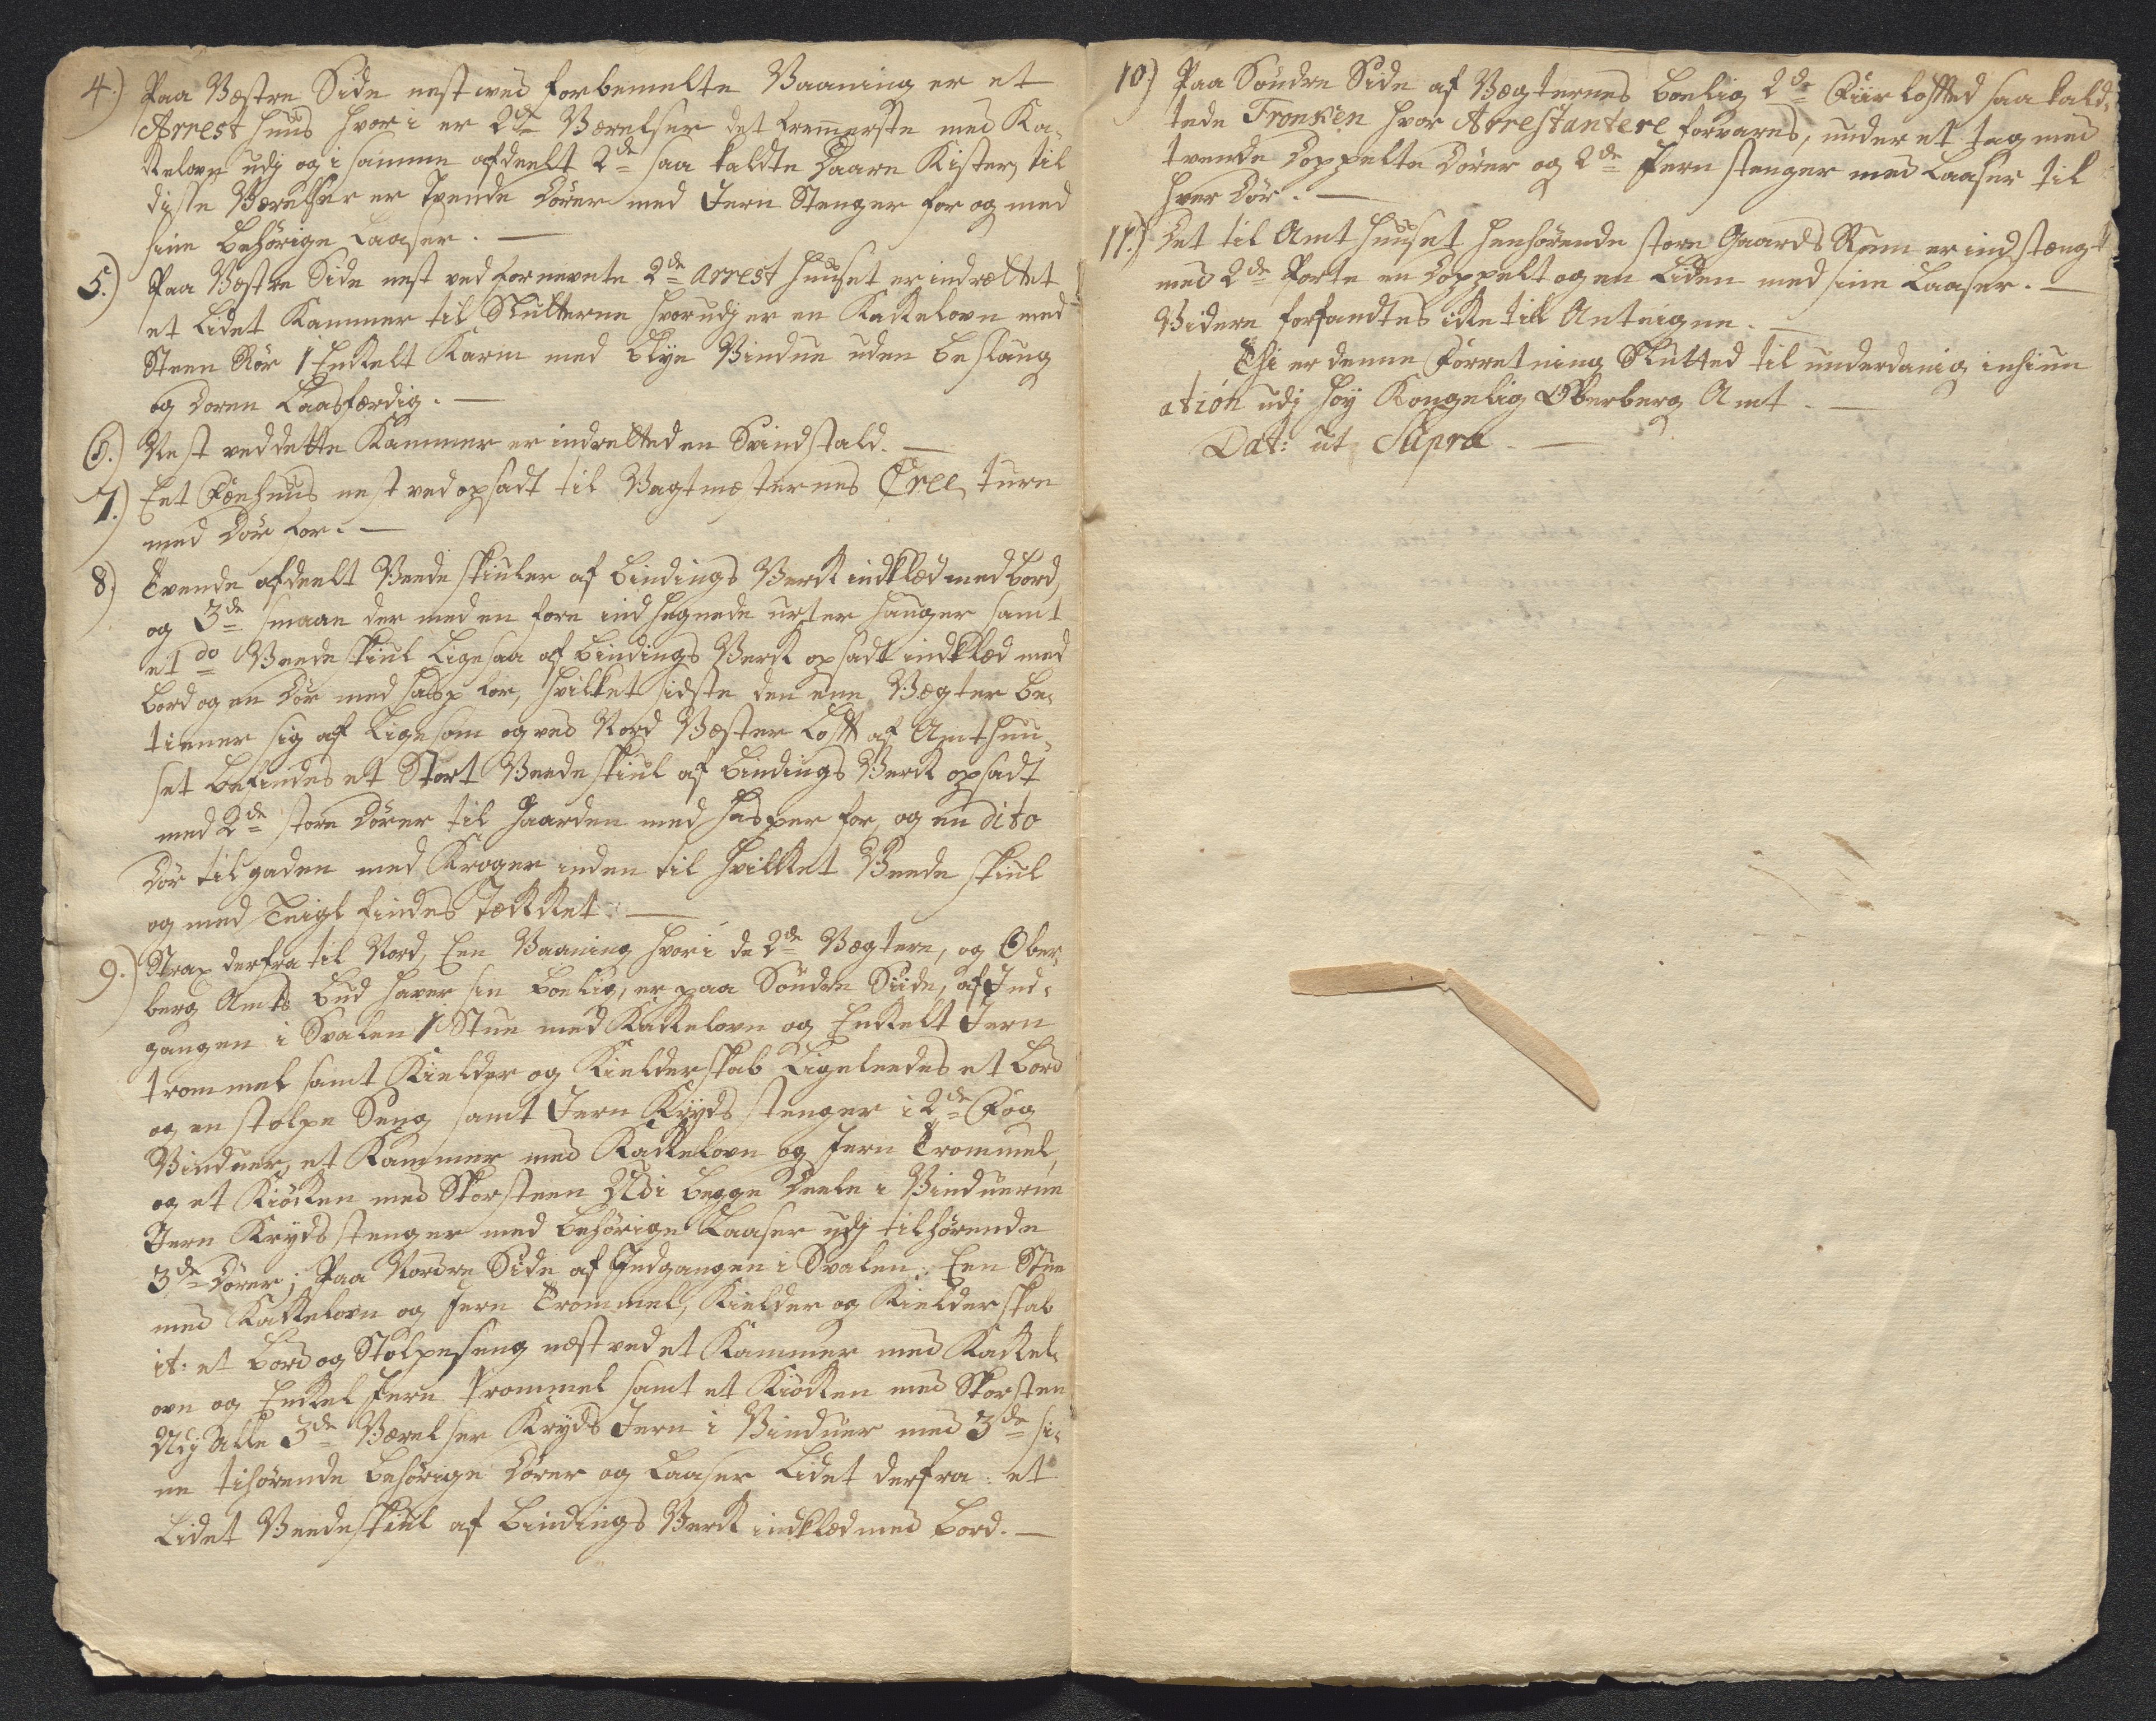 4.) Paa Vestre Side nest wed forbemelte Vaaning er et
Arrest Huus hvor i er 2de Værelser det fremmerste med Ka-
kelovn udj og i samme afdeelt 2de saa kaldte Daare Kister, til
disse Værelser er Tvende Dörer med Jern Stenger for og med
sine behörige Laaser. —
5.) Paa Vestre Side nest ved fornevnte 2de Arrest Huuset er indrettet
et Lidet Kammer til Slutterne hvorudj er en Kakelovn med
Steen Rör 1 Enkelt Karm med Blye Vindue uden beslaug
og Doren Laasfærdig. —
6.) Nest ved dette Kammer er indretted en Svindstald. —
7.) Eet Föehuus nest ved opsadt til Vagtmesternes Creeture
med Dör for. —
8) Tvende afdeelt Veedeskiuler af Bindings Verk indklæd med bord
og 3de smaae der med en fore indhegnede urter hauger samt
et do Veedeskiul Ligesaa af Bindings Verk opsadt indklæd med
bord og en Dör med hasp for, hvilket sidste den ene Vægter be-
tiener sig af Ligesom og ved Nord Vester Lofft af Amthuu-
set befindes et Stort Veedeskiul af Bindings Verk opsadt
med 2de store Dörer til Gaarden med Hasper for, og en dito
Dör til gaden med Kroger inden til hvilket Veede skiul
og med Teigl findes Tækket. —
9.) Strax derfra til Nord, Een Vaaning hvor i de 2de Vægtere, og Ober-
berg Amts bud haver sin boelig, er paa Söndre Siide, af Ind-
gangen i Svalen 1 Stue med Kakelovn og Enkelt Jern
trommel samt Kielder og Kielderskab Ligeleedes et bord
og en stolpe Seng samt Jern Kryds stenger i 2de Fög
Vinduer, et Kammer med Kakelovn og Jern Trommel,
og et Kiöken med Skorsteen Udi begge Deele i Vinduerne
Jern Kryds stenger med behörige Laaser udj tilhörende
3de Dörer; Paa Nordre Side af Indgangen i Svalen: Een Stue
med Kakelovn og Jern Trommel, Kielder og Kielderskab
it: et bord og Stolpeseng nest ved et Kammer med Kakel-
ovn og Enkel Jern trommel samt et Kiöken med Skorsten
Udj Alle 3de Værelser Kryds Jern i Vinduer med 3de si-
ne tihörende behörige Dörer og Laaser Lidet derfra: et
Lidet Veedeskiul af Bindings Verk indklæd med bord. —
10.) Paa Söndre Side af Vegternes boelig 2de Fiir lofted saa kald-
tede Tronken hvor Arrestantere forvares, under et tag med
tvende Doppelte Dörer og 2de Jern stenger med Laaser til
hver Dör. —
11.) Det til Amthuuset henhörende store Gaards Rum er indstengt
med 2de Porte en Doppelt og en Liden med sine Laaser. —
Videre forfandtes ikke till Anteigne. —
Thi er denne Forretning Slutted til underdanig insinu
ation udj höy Kongelig Oberberg Amt. —
Dat: ut Supra. —